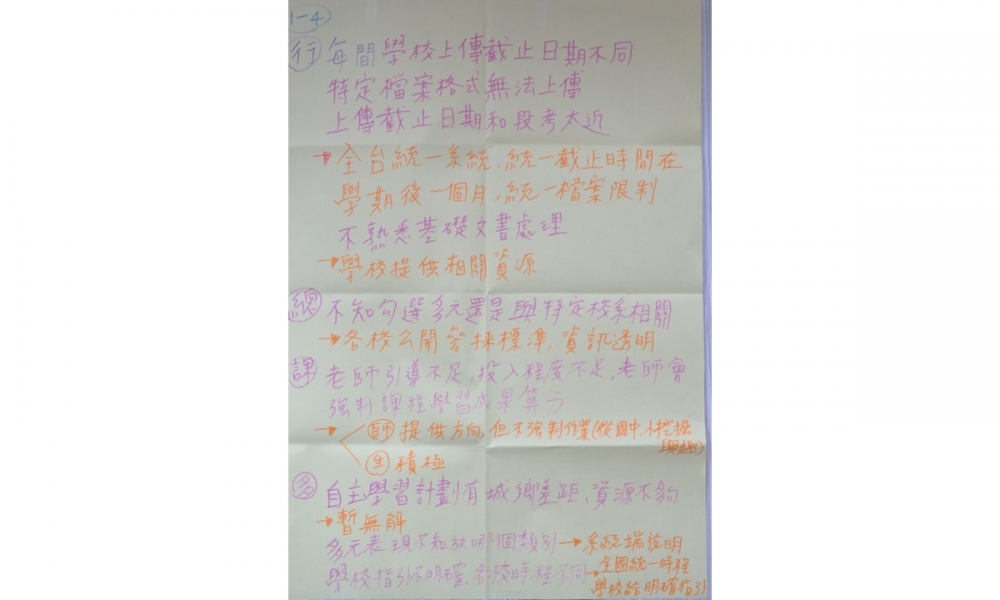 1-4
行 每間學校上傳截止日期不同
特定檔案格式無法上傳
上傳截止日期和段考太近
→全台統一系統、統一截止時間在
學期後一個月,統一檔案限制
不熟悉基礎文書處理
→學校提供相關資源
總 不知勾選多元還是與特定校系相關
→各校公開參採標準,資訊透明
課 老師引導不足,投入程度不足,老師會
強制課程學習成果算分
→師 提供方向,但不強制作業(從國中、小挖掘
興趣)
生 積極
多 自主學習計劃有城鄉差距、資源不夠
→暫無解
多元表現不知放哪個類別→系統端說明
學校指引不明確,各校時程不同→全國統一時程
學校給明確指引